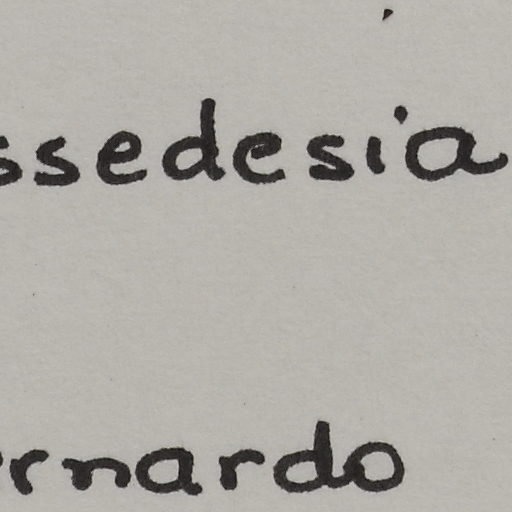 ssedesia
ernardo